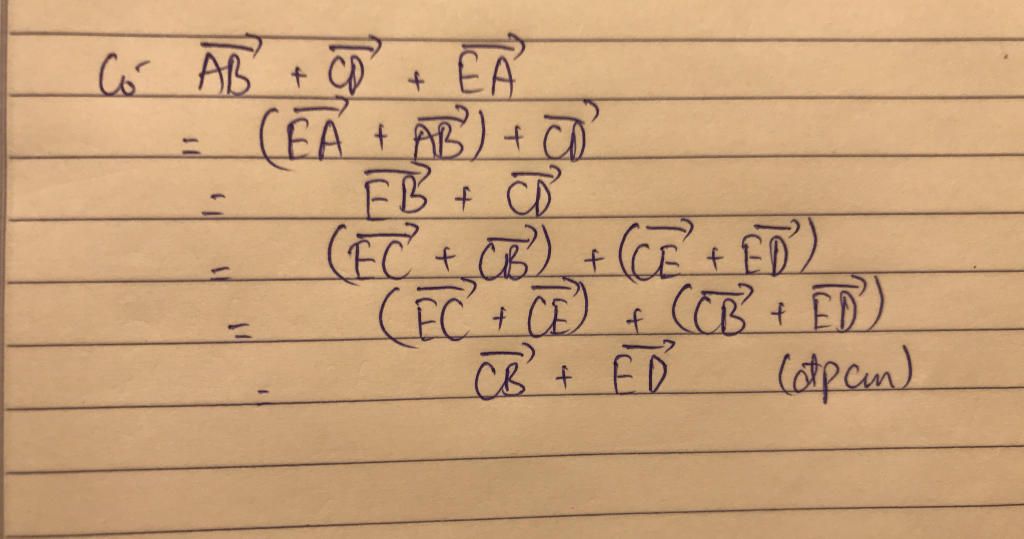 Có $\overrightarrow{AB} + \overrightarrow{CD} + \overrightarrow{EA}$
$= (\overrightarrow{EA} + \overrightarrow{AB}) + \overrightarrow{CD}$
$= \overrightarrow{EB} + \overrightarrow{CD}$
$= (\overrightarrow{EC} + \overrightarrow{CB}) + (\overrightarrow{CE} + \overrightarrow{ED})$
$= (\overrightarrow{EC} + \overrightarrow{CE}) + (\overrightarrow{CB} + \overrightarrow{ED})$
$= \overrightarrow{CB} + \overrightarrow{ED}$ (đpcm)